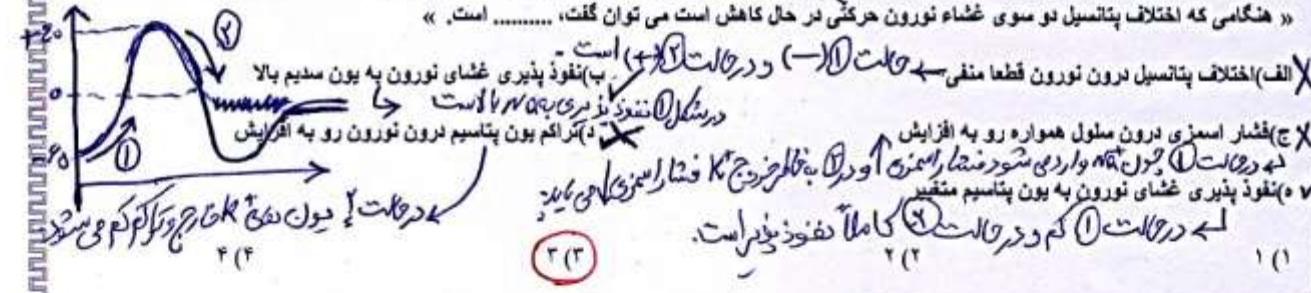 « هنگامی که اختلاف پتانسیل دو سوی غشاء نورون حرکتی در حال کاهش است می توان گفت، .......... است. »
+20
0
①
②
الف)اختلاف پتانسیل درون نورون قطعا منفی ← حالت ① (−) و در حالت ② (+) است.
ب)نفوذ پذیری غشای نورون به یون سدیم بالا
← در شکل ① نفوذ پذیری به Na بالاست
ج)فشار اسمزی درون سلول همواره رو به افزایش
د)تراکم یون پتاسیم درون نورون رو به افزایش
در حالت ① چون Na⁺ وارد می شود فشار اسمزی ↑ و در ② به خاطر خروج K⁺ فشار اسمزی می یابد
ه)نفوذ پذیری غشای نورون به یون پتاسیم متغییر
در حالت ① کم و در حالت ② کاملاً نفوذ پذیر است.
در حالت ۲ چون K⁺ خارج و تراکم کم می شود
۱) ۱
۲) ۲
۳) ۳
۴) ۴